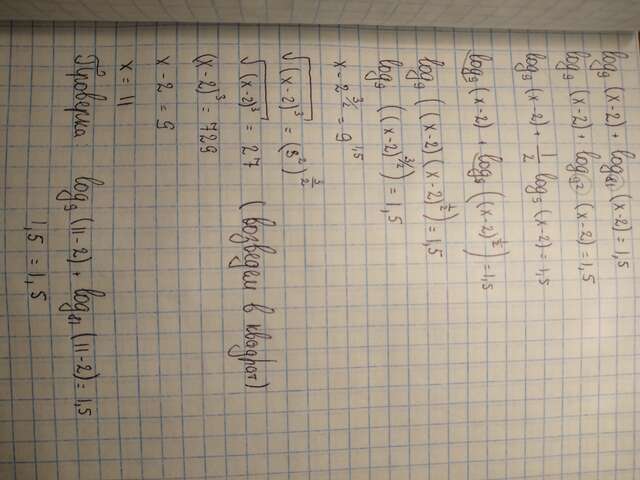 log₉ (x-2) + log₈₁ (x-2) = 1,5
log₉ (x-2) + log₉² (x-2) = 1,5
log₉ (x-2) + 1/2 log₉ (x-2) = 1,5
log₉ (x-2) + log₉ ((x-2)^(1/2)) = 1,5
log₉ ((x-2) (x-2)^(1/2)) = 1,5
log₉ ((x-2)^(3/2)) = 1,5
x - 2^(3/2) = 9^(1,5)
√((x-2)³) = (3²)^(3/2)
√((x-2)³) = 27 (возведем в квадрат)
(x-2)³ = 729
x - 2 = 9
x = 11
Проверка: log₉ (11-2) + log₈₁ (11-2) = 1,5
1,5 = 1,5